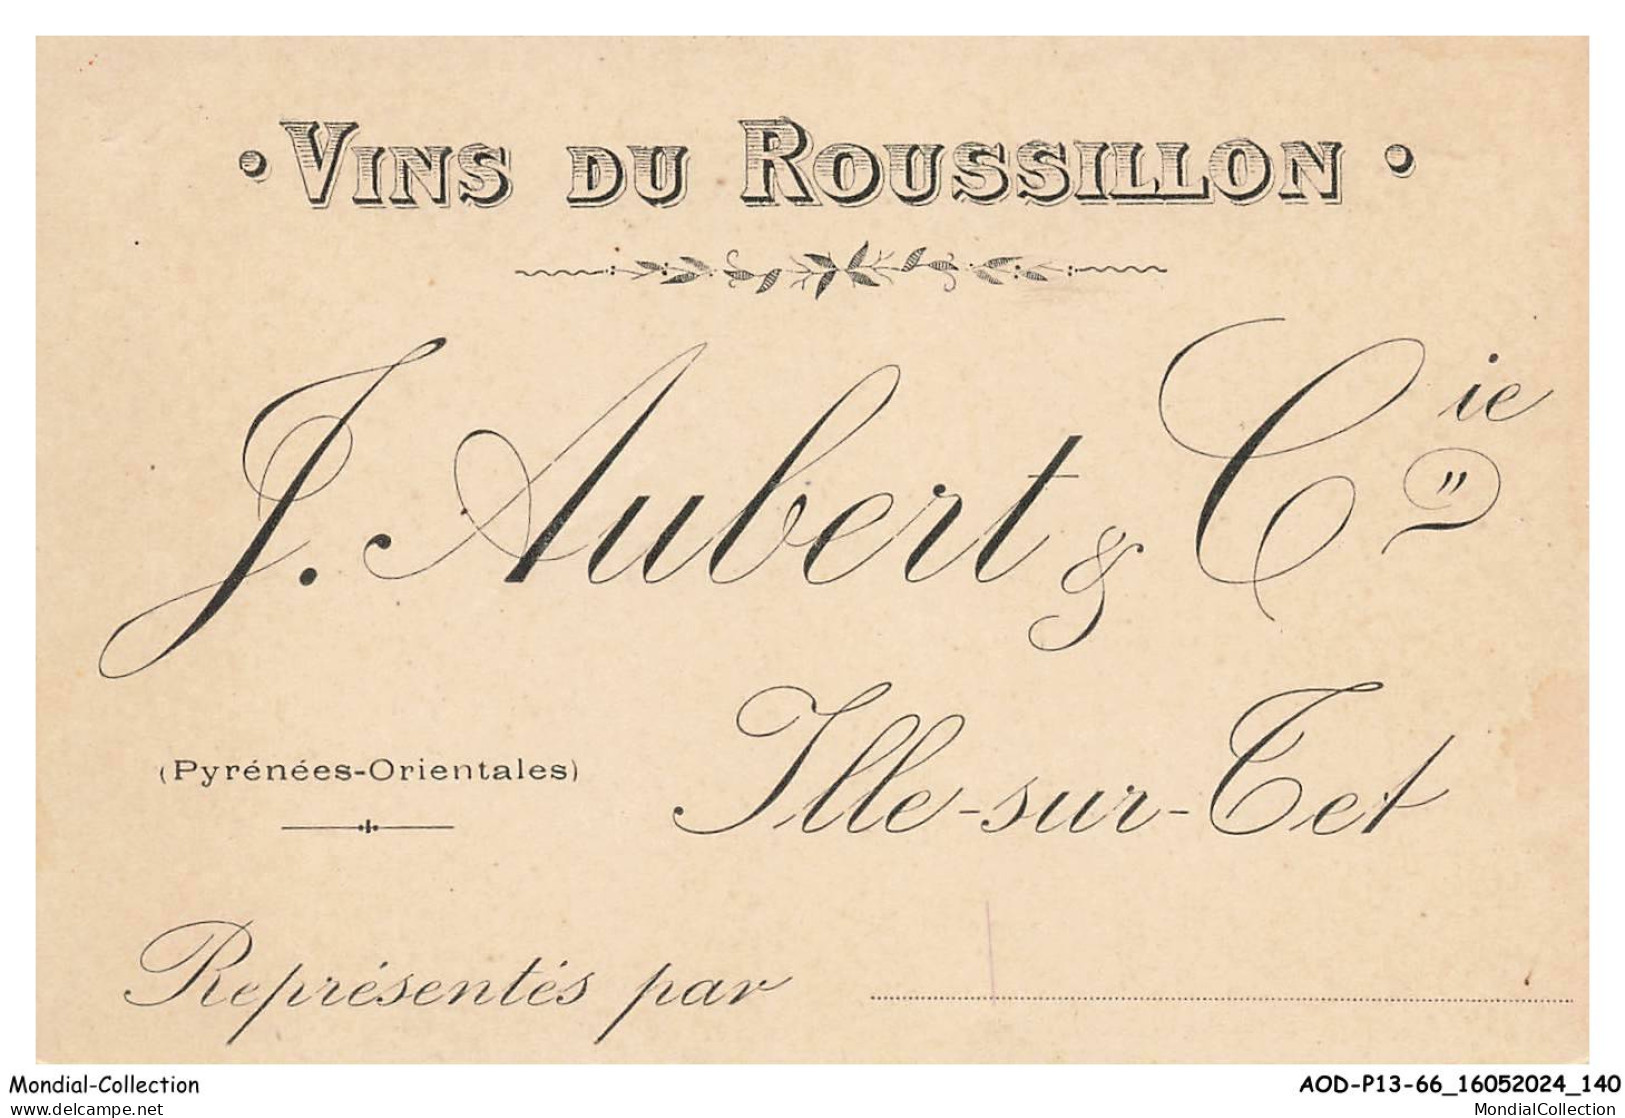 • VINS DU ROUSSILLON •
J. Aubert & Cie
(Pyrénées-Orientales) Ille-sur-Tet
Représentés par
Mondial-Collection AOD-P13-66_16052024_140
www.delcampe.net MondialCollection